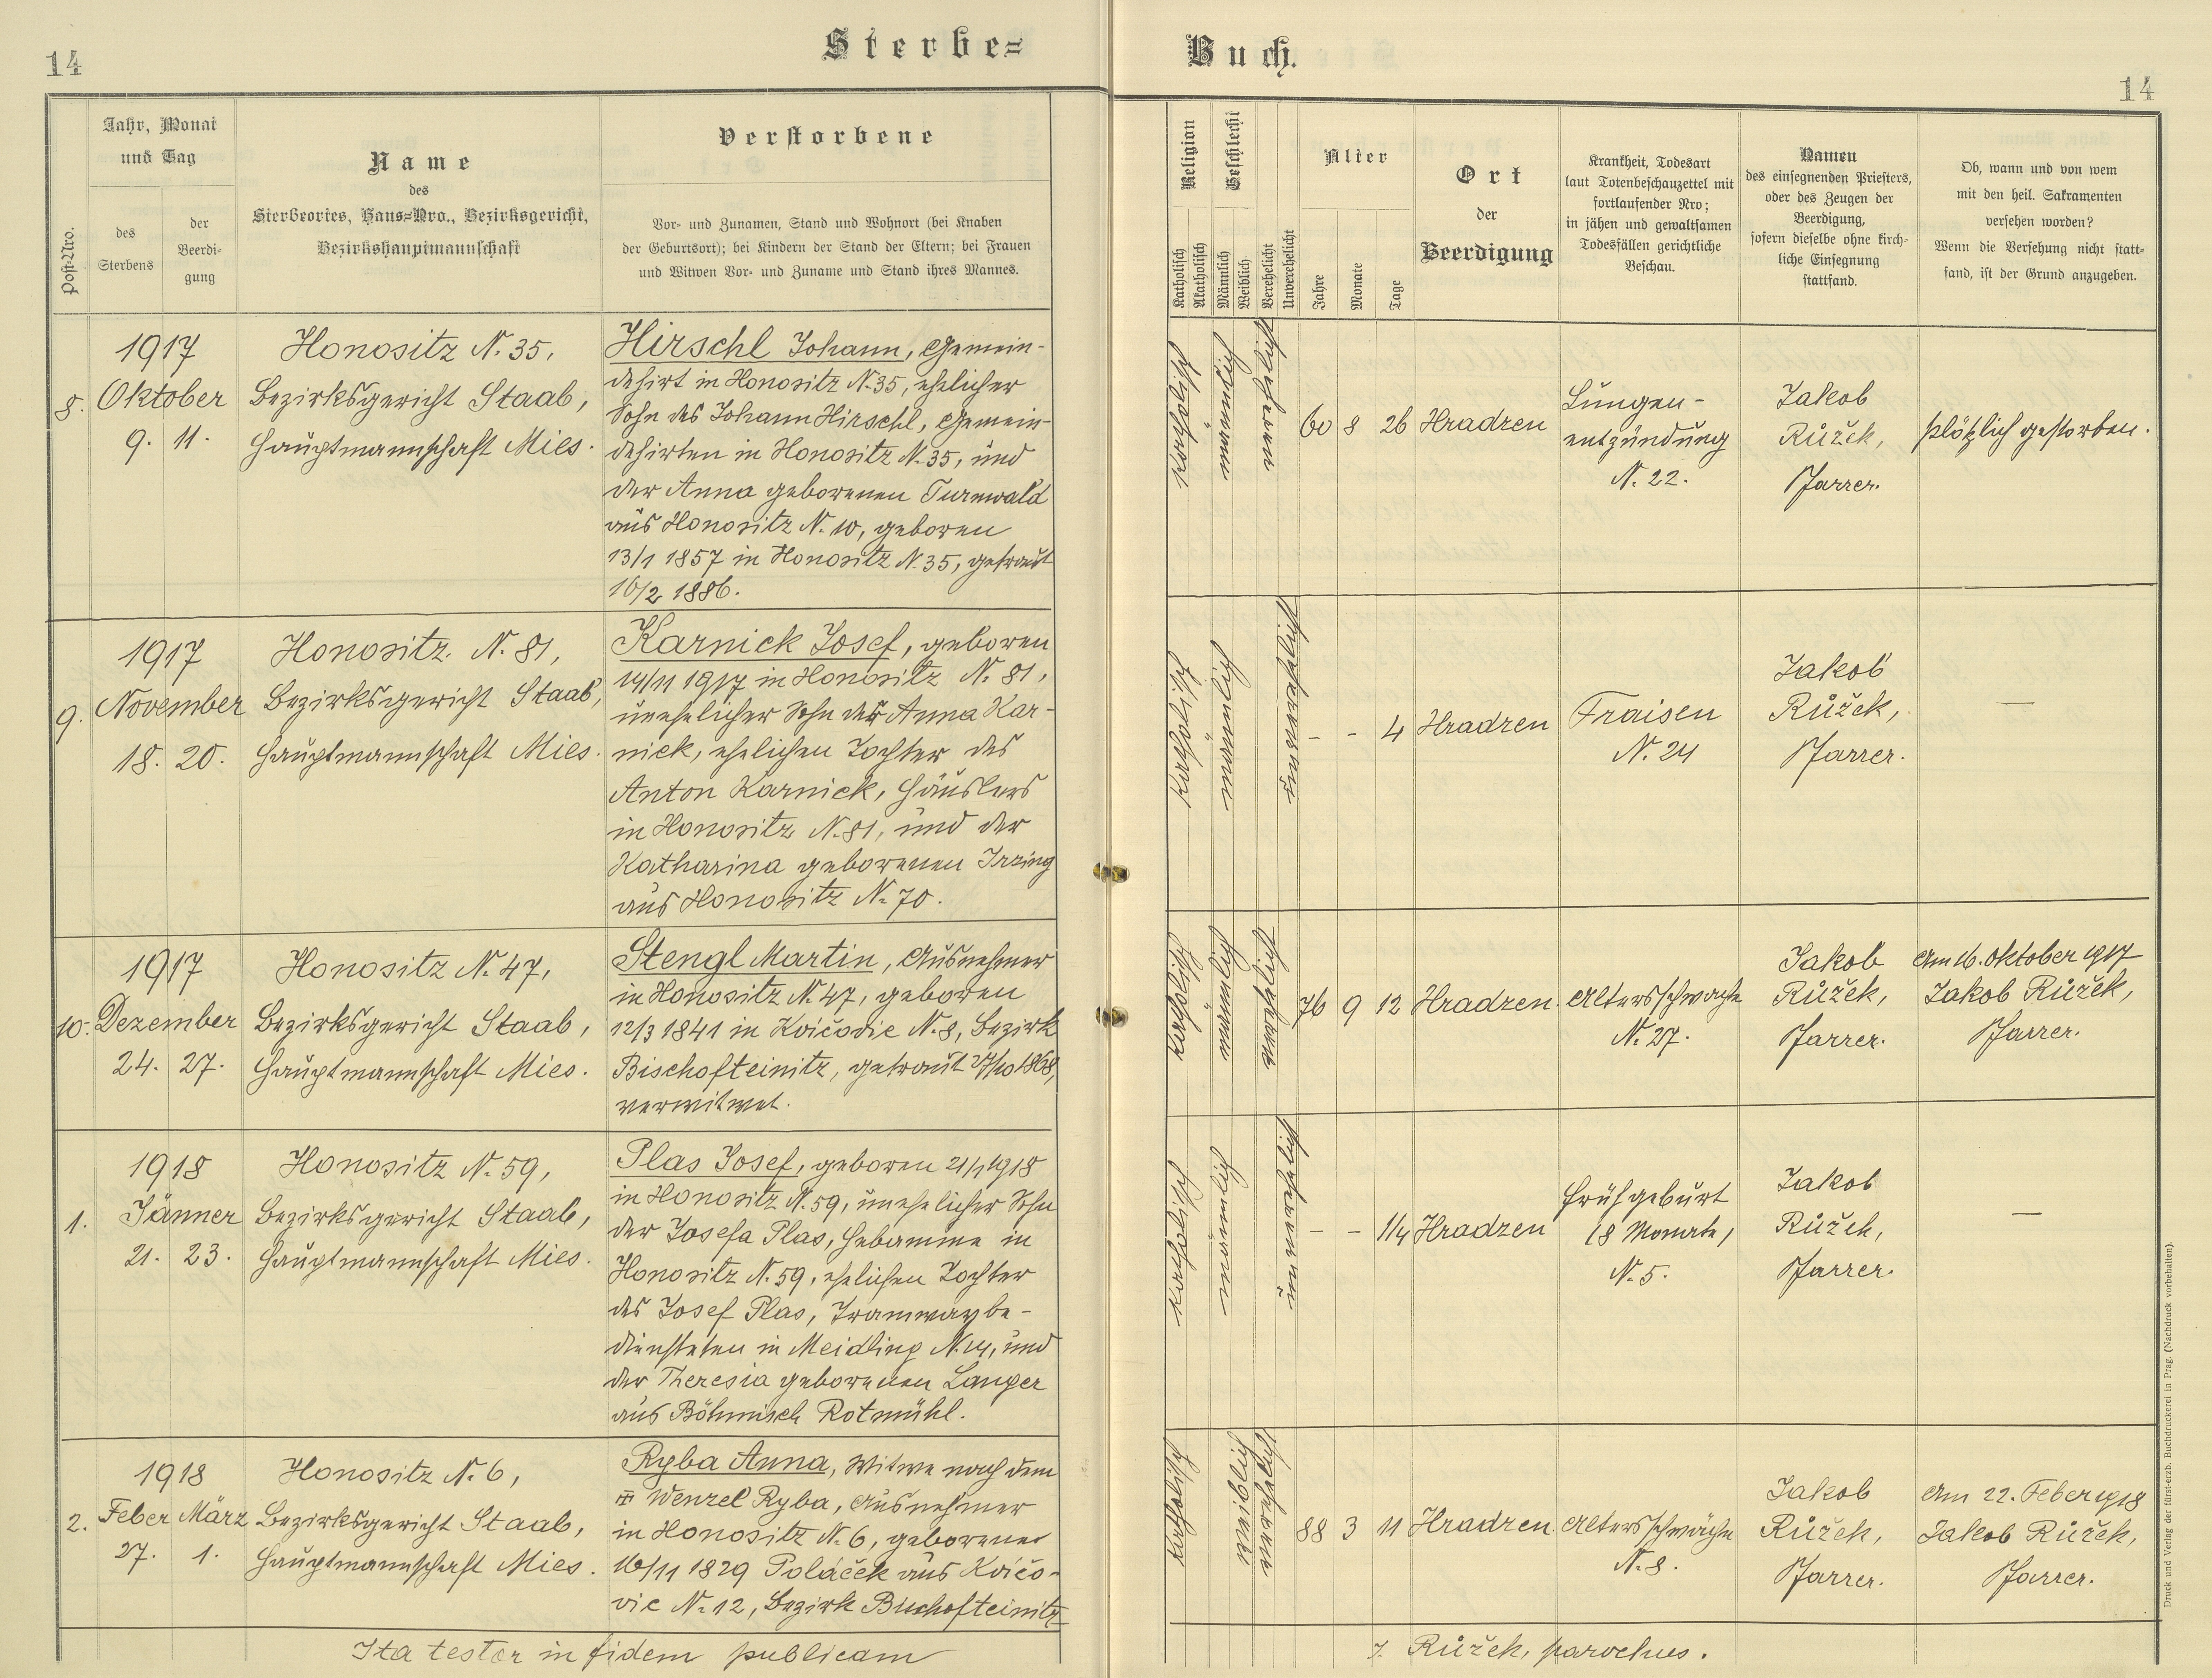 14
Sterbe=
Buch.
14
Post-Nro.
Jahr, Monat
und Tag
des
Sterbens
der
Beerdi-
gung
Name
des
Sterbeortes, Haus=Nro., Bezirksgericht,
Bezirkshauptmannschaft
Verstorbene
Vor- und Zunamen, Stand und Wohnort (bei Knaben
der Geburtsort); bei Kindern der Stand der Eltern; bei Frauen
und Witwen Vor- und Zuname und Stand ihres Mannes.
Religion
Katholisch
Akatholisch
Geschlecht
Männlich
Weiblich
Verehelicht
Unverehelicht
Alter
Jahre
Monate
Tage
Ort
der
Beerdigung
Krankheit, Todesart
laut Totenbeschauzettel mit
fortlaufender Nro;
in jähen und gewaltsamen
Todesfällen gerichtliche
Beschau.
Namen
des einsegnenden Priesters,
oder des Zeugen der
Beerdigung,
sofern dieselbe ohne kirch-
liche Einsegnung
stattfand.
Ob, wann und von wem
mit den heil. Sakramenten
versehen worden?
Wenn die Versehung nicht statt-
fand, ist der Grund anzugeben.
8.
1917
Oktober
9. 11.
Honositz N. 35,
Bezirksgericht Staab,
Hauptmannschaft Mies.
Hirschl Johann, Gemein-
dehirt in Honositz N. 35, ehelicher
Sohn des Johann Hirschl, Gemein-
dehirten in Honositz N. 35, und
der Anna geborenen Turnwald
aus Honositz N. 10, geboren
13/1 1857 in Honositz N. 35, getraut
16/2 1886.
katholisch
männlich
verehelicht
60 8 26
Hradzen
Lungen-
entzündung
N. 22.
Jakob
Růžek,
Pfarrer.
plötzlich gestorben.
9.
1917
November
18. 20.
Honositz N. 81,
Bezirksgericht Staab,
Hauptmannschaft Mies.
Karnick Josef, geboren
14/11 1917 in Honositz N. 81,
unehelicher Sohn der Anna Kar-
nick, ehelichen Tochter des
Anton Karnick, Häuslers
in Honositz N. 81, und der
Katharina geborenen Irzing
aus Honositz N. 70.
katholisch
männlich
unverehelicht
- - 4
Hradzen
Fraisen
N. 24
Jakob
Růžek,
Pfarrer.
—
10.
1917
Dezember
24. 27.
Honositz N. 47,
Bezirksgericht Staab,
Hauptmannschaft Mies.
Stengl Martin, Ausnehmer
in Honositz N. 47, geboren
12/3 1841 in Kvičovic N. 8, Bezirk
Bischofteinitz, getraut 27/10 1868,
verwitwet.
katholisch
männlich
verehelicht
76 9 12
Hradzen.
Altersschwäche
N. 27.
Jakob
Růžek,
Pfarrer.
Am 16. Oktober 1917
Jakob Růžek,
Pfarrer.
1.
1918
Jänner
21. 23.
Honositz N. 59,
Bezirksgericht Staab,
Hauptmannschaft Mies.
Plas Josef, geboren 21/1 1918
in Honositz N. 59, unehelicher Sohn
der Josefa Plas, Hebamme in
Honositz N. 59, ehelichen Tochter
des Josef Plas, Tramwaybe-
diensteten in Meidling N. 14, und
der Theresia geborenen Langer
aus Böhmisch Rotmühl.
katholisch
männlich
unverehelicht
- - 1/4
Hradzen
Frühgeburt
(8 Monate)
N. 5.
Jakob
Růžek,
Pfarrer.
—
2.
1918
Feber März
27. 1.
Honositz N. 6,
Bezirksgericht Staab,
Hauptmannschaft Mies.
Ryba Anna, Witwe nach dem
Wenzel Ryba, Ausnehmer
in Honositz N. 6, geborene
16/11 1829 Poláček aus Kvičo-
vic N. 12, Bezirk Bischofteinitz
katholisch
weiblich
verehelicht
88 3 11
Hradzen.
Altersschwäche
N. 8.
Jakob
Růžek,
Pfarrer.
Am 22. Feber 1918
Jakob Růžek,
Pfarrer.
Ita testor in fidem publicam
J. Růžek, parochus.
Druck und Verlag der fürst-erzb. Buchdruckerei in Prag. (Nachdruck vorbehalten).